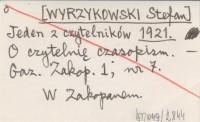 [WYRZYKOWSKI Stefan]
Jeden z czytelników 1921.
O czytelnię czasopism. —
Gaz. Zakop. 1, nr 7.
W Zakopanem.